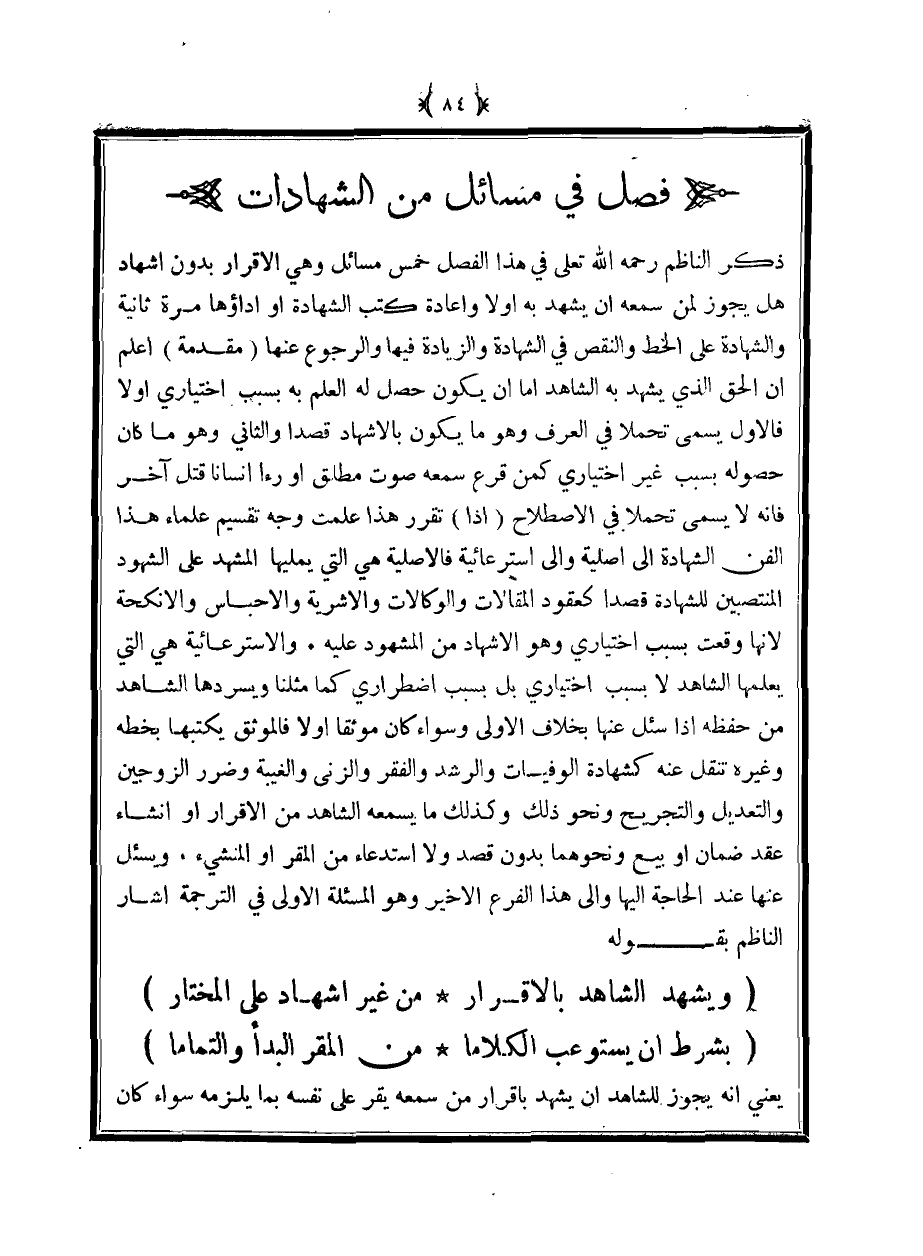 ﴿ ٨٤ ﴾
فصل في مسائل من الشهادات
ذكر الناظم رحمه الله تعلى في هذا الفصل خمس مسائل وهي الاقرار بدون اشهاد
هل يجوز لمن سمعه ان يشهد به اولا واعادة كتب الشهادة او اداؤها مرة ثانية
والشهادة على الخط والنقص في الشهادة والزيادة فيها والرجوع عنها ( مقدمة ) اعلم
ان الحق الذي يشهد به الشاهد اما ان يكون حصل له العلم به بسبب اختياري اولا
فالاول يسمى تحملا في العرف وهو ما يكون بالاشهاد قصدا والثاني وهو ما كان
حصوله بسبب غير اختياري كمن قرع سمعه صوت مطلق او رءا انسانا قتل آخر
فانه لا يسمى تحملا في الاصطلاح ( اذا ) تقرر هذا علمت وجه تقسيم علماء هذا
الفن الشهادة الى اصلية والى استرعائية فالاصلية هي التي يمليها المشهد على الشهود
المنتصبين للشهادة قصدا كعقود المقالات والوكالات والاشرية والاحباس والانكحة
لانها وقعت بسبب اختياري وهو الاشهاد من المشهود عليه . والاسترعائية هي التي
يعلمها الشاهد لا بسبب اختياري بل بسبب اضطراري كما مثلنا ويسردها الشاهد
من حفظه اذا سئل عنها بخلاف الاولى وسواء كان موثقا اولا فالموثق يكتبها بخطه
وغيره تنقل عنه كشهادة الوفيات والرشد والفقر والزنى والغيبة وضرر الزوجين
والتعديل والتجريح ونحو ذلك وكذلك ما يسمعه الشاهد من الاقرار او انشاء
عقد ضمان او بيع ونحوهما بدون قصد ولا استدعاء من المقر او المنشيء . ويسئل
عنها عند الحاجة اليها والى هذا الفرع الاخير وهو المسئلة الاولى في الترجمة اشار
الناظم بقوله
( ويشهد الشاهد بالاقرار * من غير اشهاد على المختار )
( بشرط ان يستوعب الكلاما * من المقر البدأ والتماما )
يعني انه يجوز للشاهد ان يشهد باقرار من سمعه يقر على نفسه بما يلزمه سواء كان